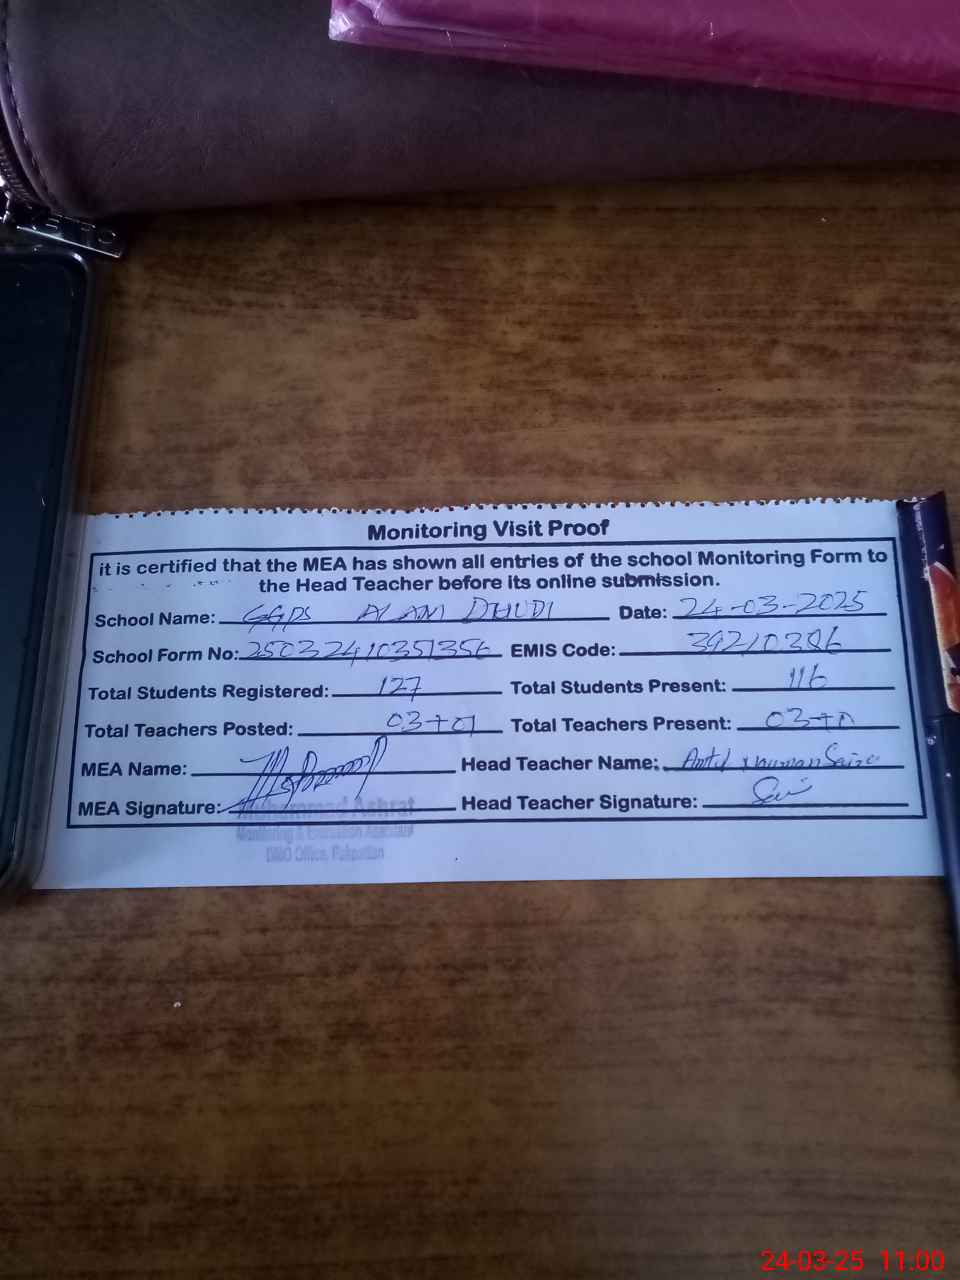 Monitoring Visit Proof
it is certified that the MEA has shown all entries of the school Monitoring Form to
the Head Teacher before its online submission.
School Name: GGPS ALAM DHUDI Date: 24-03-2025
School Form No: 25032410351356 EMIS Code: 39210386
Total Students Registered: 127 Total Students Present: 116
Total Teachers Posted: 03+01 Total Teachers Present: 03+
MEA Name: Head Teacher Name:
MEA Signature: Head Teacher Signature:
Muhammad Ashraf
Monitoring & Evaluation Assistant
DMO Office, Pakpattan
24-03-25 11:00